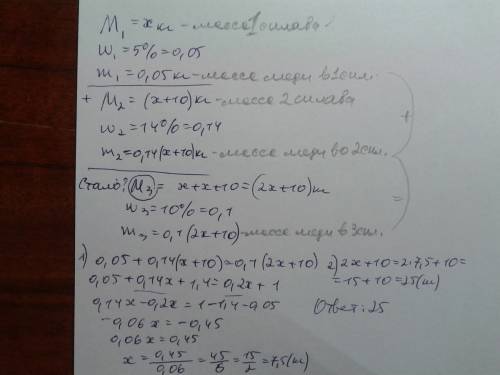 M₁ = x кг - масса 1 сплава
w₁ = 5% = 0,05
m₁ = 0,05 кг - масса меди в 1 спл.
+ M₂ = (x+10) кг - масса 2 сплава +
w₂ = 14% = 0,14
m₂ = 0,14(x+10) кг - масса меди во 2 спл.
Стало? M₃ = x + x + 10 = (2x+10) кг =
w₃ = 10% = 0,1
m₃ = 0,1(2x+10) - масса меди в 3 спл.
1) 0,05 + 0,14(x+10) = 0,1(2x+10)
0,05 + 0,14x + 1,4 = 0,2x + 1
0,14x - 0,2x = 1 - 1,4 - 0,05
-0,06x = -0,45
0,06x = 0,45
x = 0,45/0,06 = 45/6 = 15/2 = 7,5 (кг)
2) 2x + 10 = 2·7,5 + 10 =
= 15 + 10 = 25 (кг)
Ответ: 25